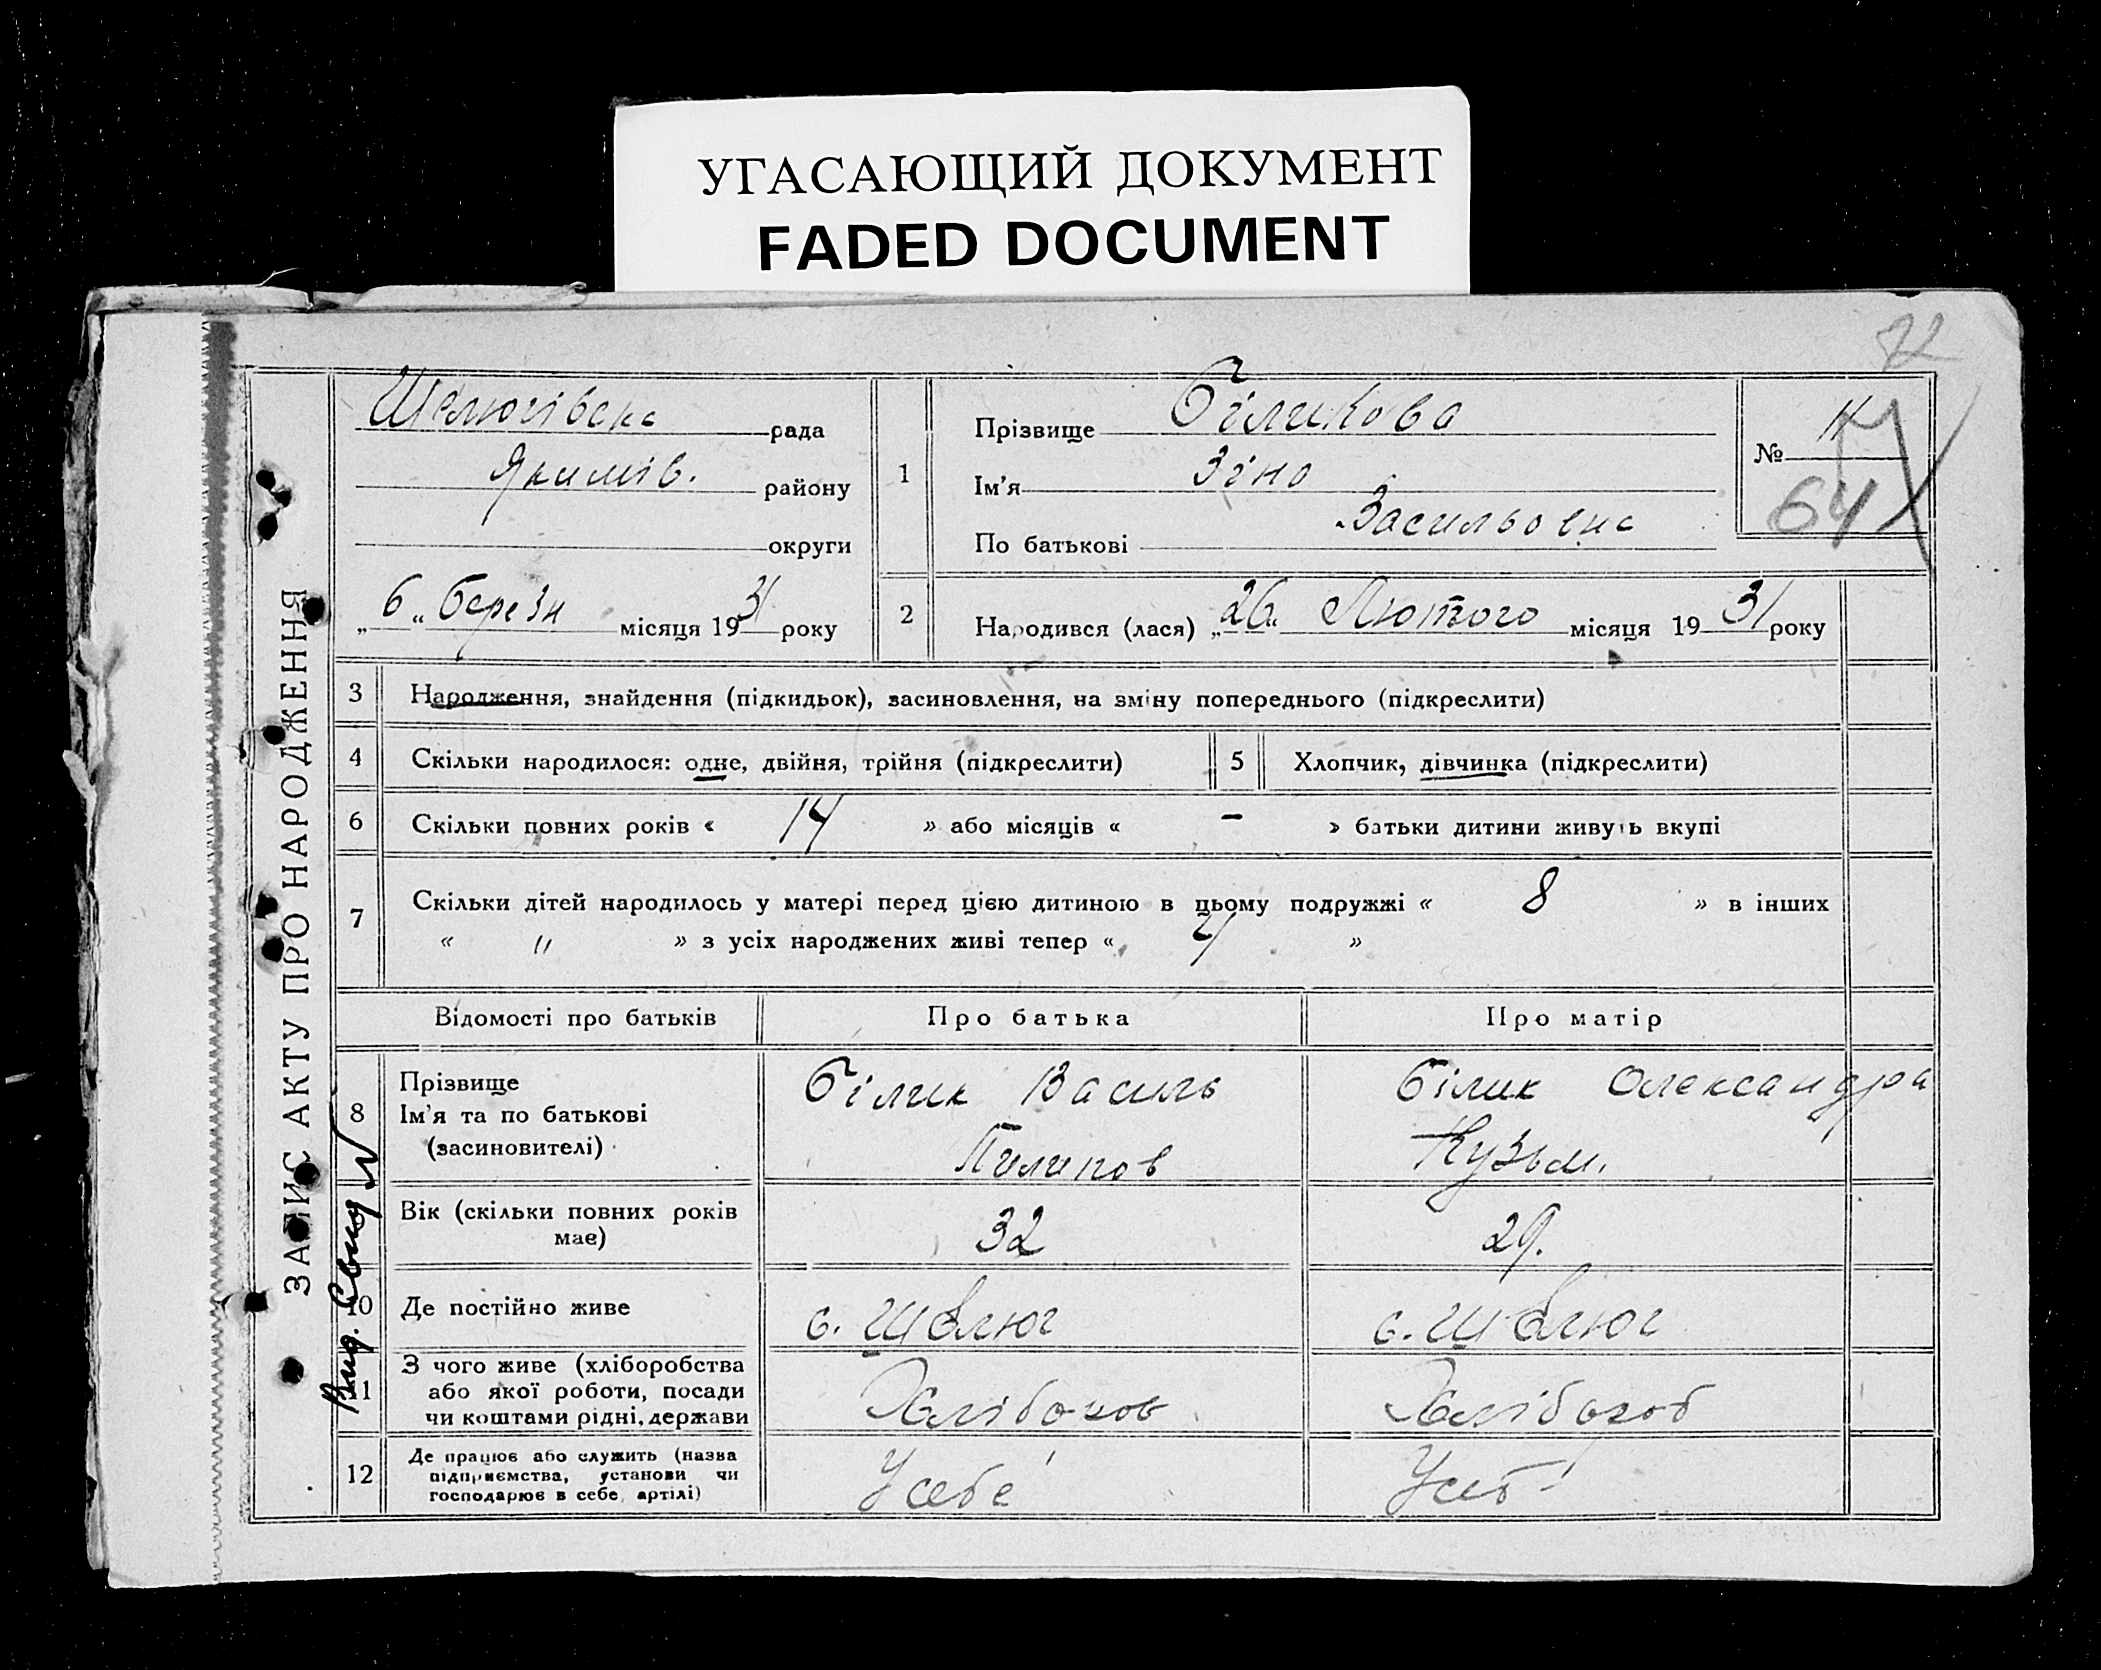 УГАСАЮЩИЙ ДОКУМЕНТ
FADED DOCUMENT
72
ЗАПИС АКТУ ПРО НАРОДЖЕННЯ
Шелюгівська рада
Якимів. району
округи
„6“ березн місяця 1931 року
1
Прізвище Біликова
Ім'я Зіна
По батькові Васильовна
№ 11
64
2
Народився (лася) „26“ Лютого місяця 1931 року
3 Народження, знайдення (підкидьок), засиновлення, на зміну попереднього (підкреслити)
4 Скільки народилося: одне, двійня, трійня (підкреслити) 5 Хлопчик, дівчинка (підкреслити)
6 Скільки повних років « 14 » або місяців « – » батьки дитини живуть вкупі
7 Скільки дітей народилось у матері перед цією дитиною в цьому подружжі « 8 » в інших
« " » з усіх народжених живі тепер « 4 »
Відомості про батьків Про батька Про матір
8 Прізвище
Ім'я та по батькові
(засиновителі)
Білик Василь
Пилипов
Білик Олександра
Кузьм.
Вік (скільки повних років
має)
32
29.
10 Де постійно живе с. Шелюг с. Шелюг
11 З чого живе (хліборобства
або якої роботи, посади
чи коштами рідні, держави
Хлібороб
Хлібороб
12 Де працює або служить (назва
підприємства, установи чи
господарює в себе, артілі)
У себе
У себ
Вид. Свид